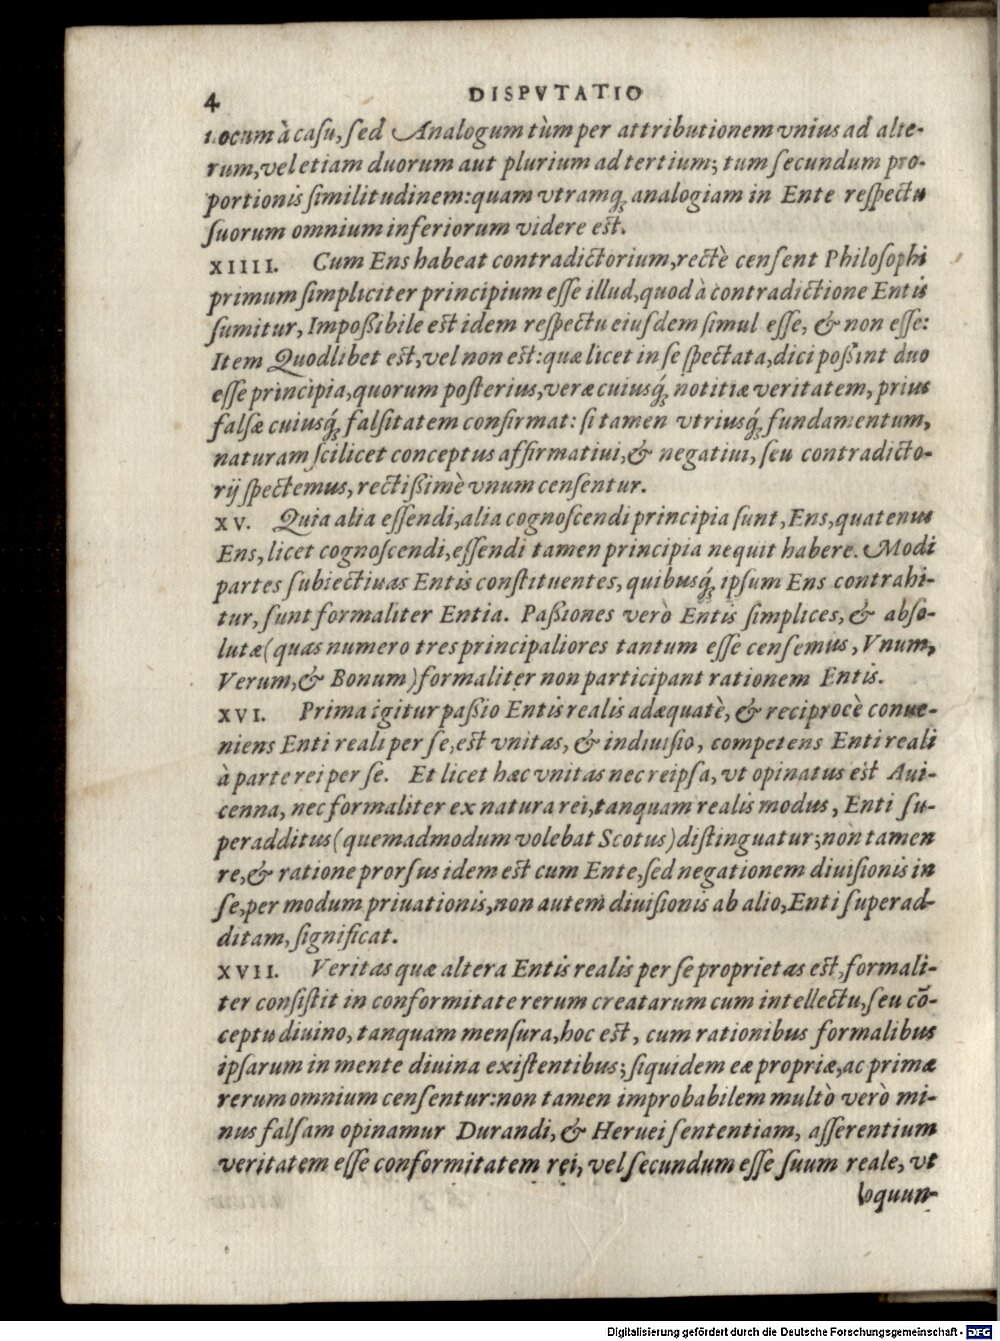 4
DISPVTATIO
uocum à casu, sed Analogum tùm per attributionem vnius ad alte-
rum, vel etiam duorum aut plurium ad tertium; tum secundum pro-
portionis similitudinem: quam vtramq́; analogiam in Ente respectu
suorum omnium inferiorum videre est.
XIIII. Cum Ens habeat contradictorium, rectè censent Philosophi
primum simpliciter principium esse illud, quod à contradictione Entis
sumitur, Impoßibile est idem respectu eiusdem simul esse, & non esse:
Item Quodlibet est, vel non est: quæ licet in se spectata, dici poßint duo
esse principia, quorum posterius, veræ cuiusq́; notitiæ veritatem, prius
falsæ cuiusq́; falsitatem confirmat: si tamen vtriusq́; fundamentum,
naturam scilicet conceptus affirmatiui, & negatiui, seu contradicto-
rij spectemus, rectißimè vnum censentur.
XV. Quia alia essendi, alia cognoscendi principia sunt, Ens, quatenus
Ens, licet cognoscendi, essendi tamen principia nequit habere. Modi
partes subiectiuas Entis constituentes, quibusq́; ipsum Ens contrahi-
tur, sunt formaliter Entia. Paßiones verò Entis simplices, & abso-
lutæ (quas numero tres principaliores tantum esse censemus, Vnum,
Verum, & Bonum) formaliter non participant rationem Entis.
XVI. Prima igitur paßio Entis realis adæquatè, & reciprocè conue-
niens Enti reali per se, est vnitas, & indiuisio, competens Enti reali
à parte rei per se. Et licet hæc vnitas nec reipsa, vt opinatus est Aui-
cenna, nec formaliter ex natura rei, tanquam realis modus, Enti su-
peradditus (quemadmodum volebat Scotus) distinguatur; non tamen
re, & ratione prorsus idem est cum Ente, sed negationem diuisionis in
se, per modum priuationis, non autem diuisionis ab alio, Enti superad-
ditam, significat.
XVII. Veritas quæ altera Entis realis per se proprietas est, formali-
ter consistit in conformitate rerum creatarum cum intellectu, seu cõ-
ceptu diuino, tanquam mensura, hoc est, cum rationibus formalibus
ipsarum in mente diuina existentibus; siquidem eæ propriæ, ac primæ
rerum omnium censentur: non tamen improbabilem multò verò mi-
nus falsam opinamur Durandi, & Heruei sententiam, asserentium
veritatem esse conformitatem rei, vel secundum esse suum reale, vt
loquun-
Digitalisierung gefördert durch die Deutsche Forschungsgemeinschaft - DFG